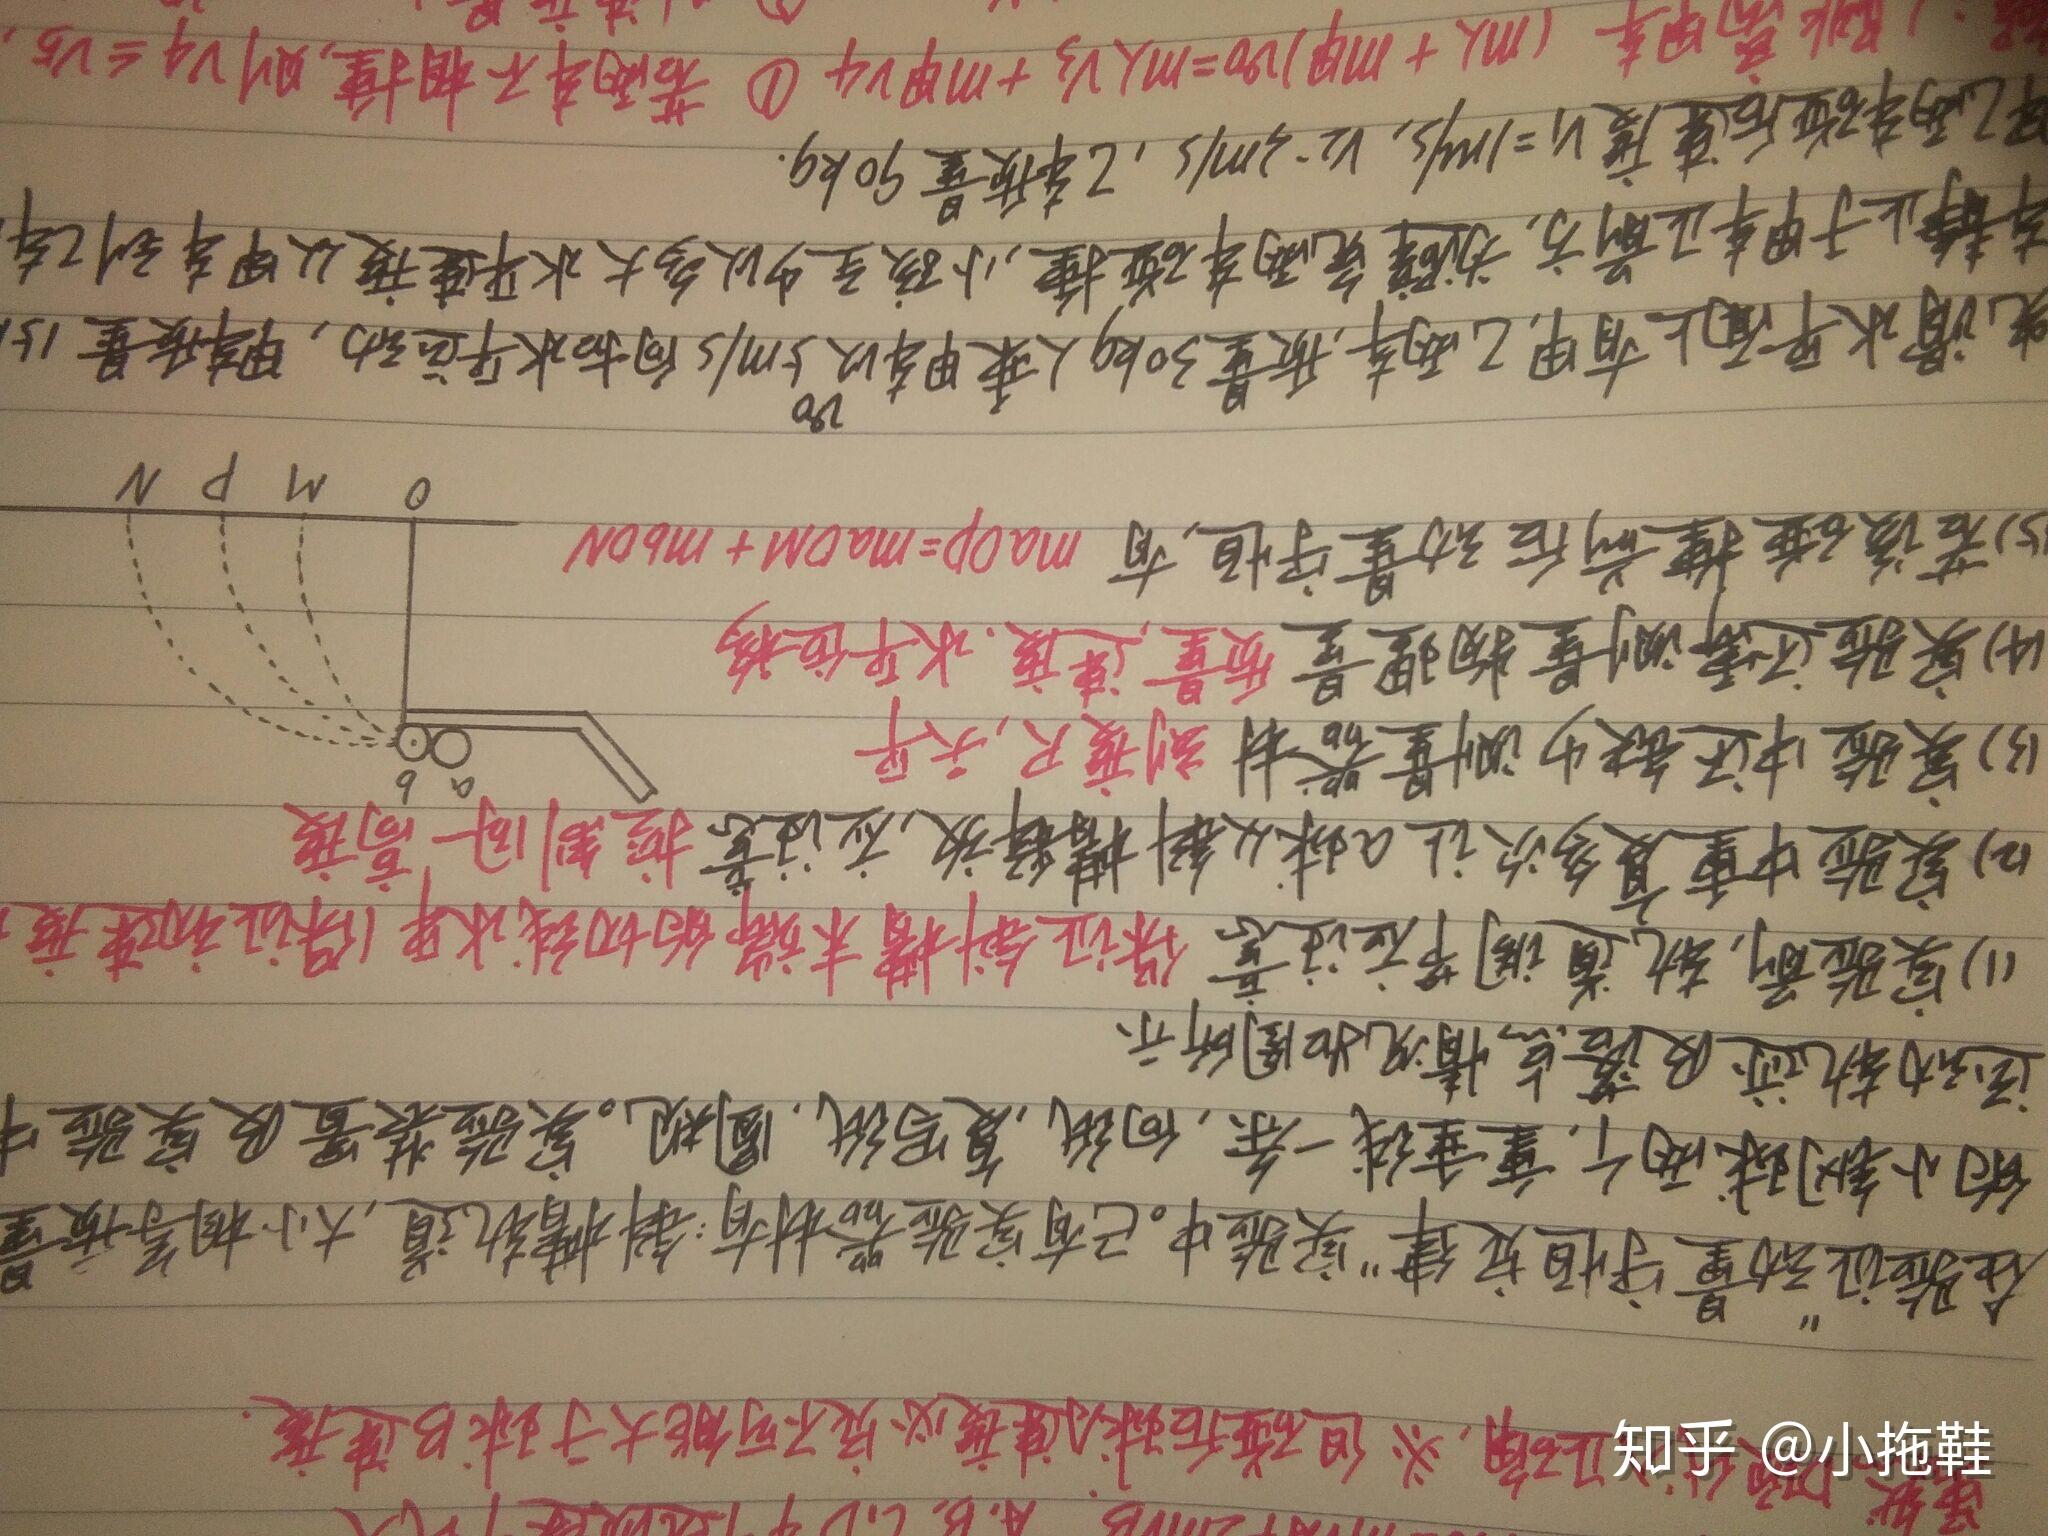 A.B.C.D
但碰后球A速度必定不可能大于球B速度.
在验证"动量守恒定律"实验中。已有实验器材有:斜槽轨道,大小相等质量
的小钢球两个,重垂线一条,白纸,复写纸,圆规。实验装置及实验中
运动轨迹及落点情况如图所示
(1)实验前,轨道调节应注意 保证斜槽末端的切线水平(保证初速度
(2)实验中重复多次让a球从斜槽释放,应注意 控制同一高度
(3)实验中还缺少测量器材 刻度尺,天平
(4)实验还需测量物理量 质量,速度.水平位移
(5)若该碰撞前后动量守恒,有 maOP=maOM+mbON
a
b
O M P N
光滑水平面上有甲,乙两车,质量30kg人乘甲车以5m/s向右水平运动,甲车质量15
v0
车静止于甲车正前方,为避免两车碰撞,小孩至少以多大水平速度从甲车到乙车
甲乙两车碰后速度v1=1m/s, v2=2m/s,乙车质量90kg.
跳离甲车 (m人+m甲)v0=m人v3+m甲v4 ① 若两车不相撞,则v4≤v5,
知乎 @小拖鞋